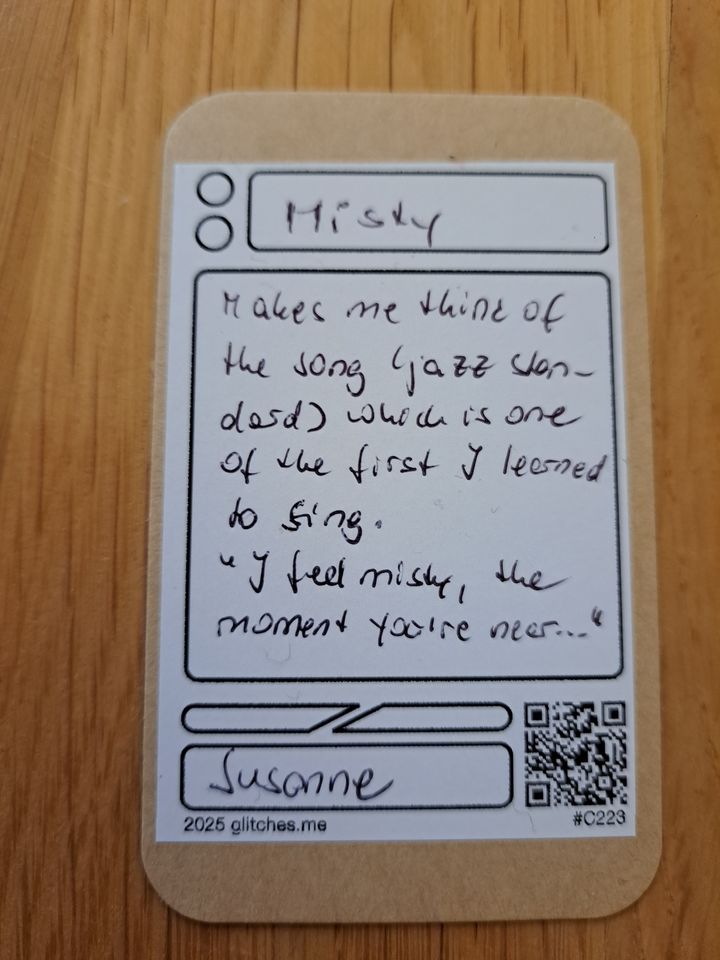 Misty
Makes me think of
the song (jazz stan-
dard) which is one
of the first I learned
to sing.
"I feel misty, the
moment you're near..."
Susanne
2025 glitches.me
#C223